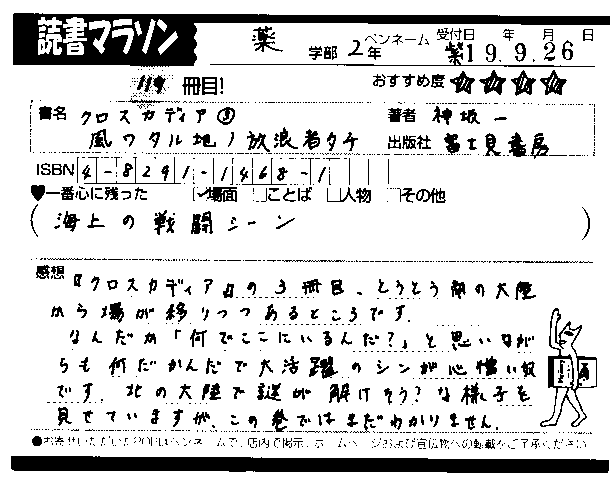 読書マラソン
薬 学部 2年 ペンネーム 紫 受付日 年 月 日
19.9.26
114 冊目! おすすめ度 ☆☆☆☆
書名 クロスカディア③ 著者 神坂一
風ワタル地ノ放浪者タチ 出版社 富士見書房
ISBN 4-8291-1468-1
♥一番心に残った ☑場面 □ことば □人物 □その他
(海上の戦闘シーン)
感想 『クロスカディア』の3冊目、とうとう南の大陸
から場が移りつつあるところです.
なんだか「何でここにいるんだ?」と思いなが
らも何だかんだで大活躍のシンが心憎い奴
です. 北の大陸で謎が解けそう?な様子を
見せていますが、この巻ではまだわかりません.
●お寄せいただいたPOPはペンネームで、店内で掲示、ホームページおよび宣伝物への転載をご了承ください